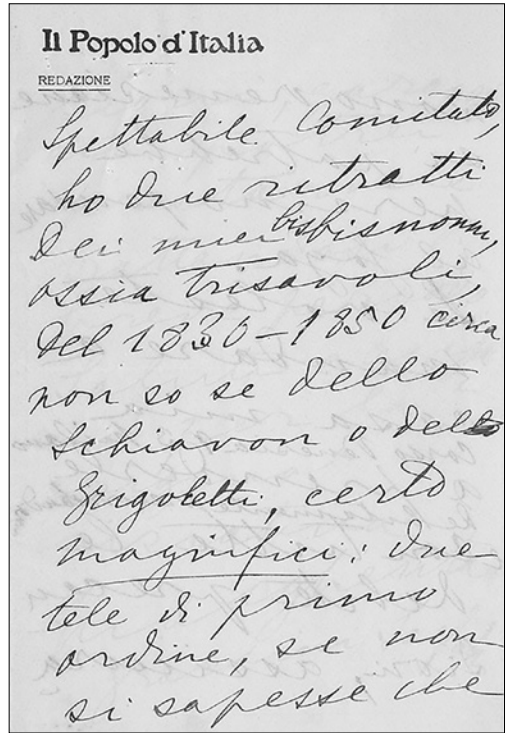 Il Popolo d'Italia
REDAZIONE
Spettabile Comitato,
ho due ritratti
dei miei bisbisnonni,
ossia trisavoli,
del 1830-1850 circa
non so se dello
Schiavon o del
Grigoletti, certo
magnifici: due
tele di primo
ordine, se non
si sapesse che